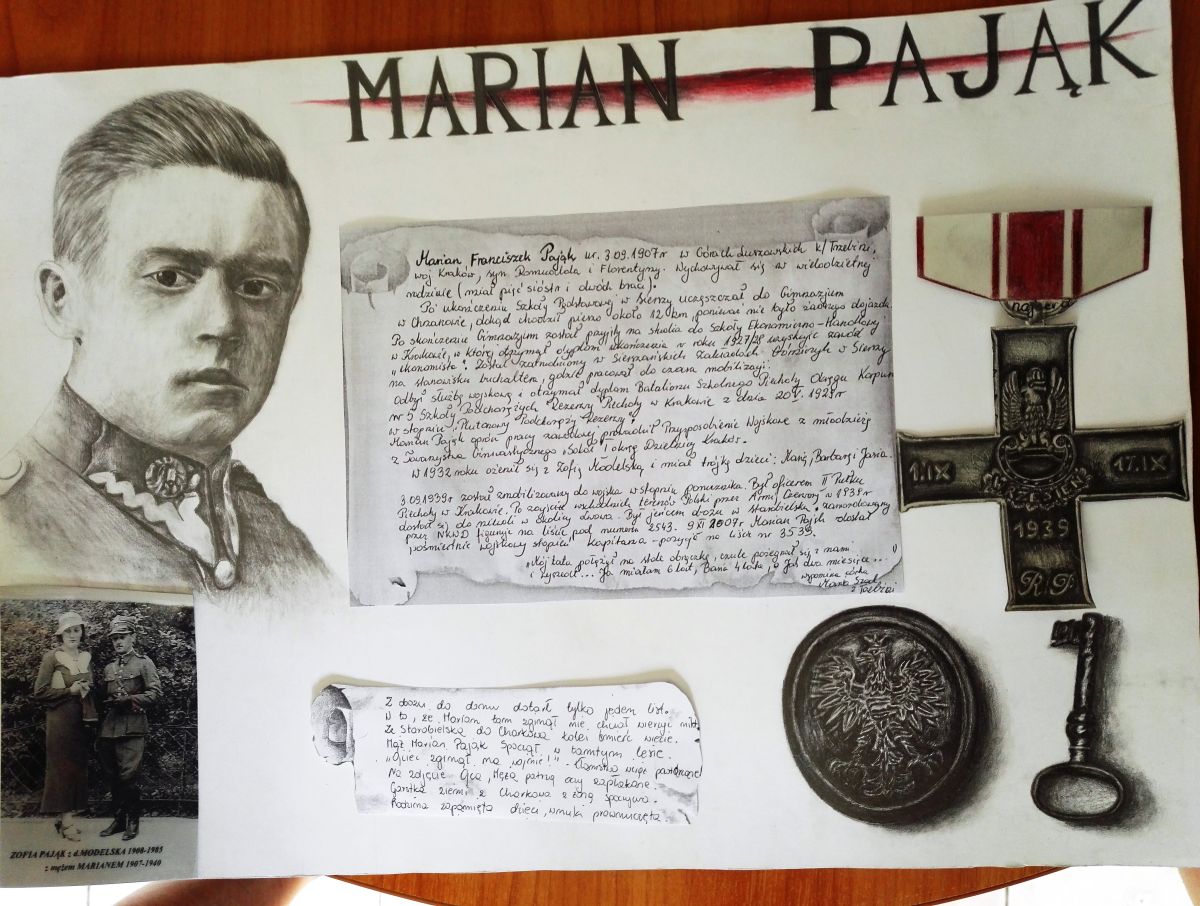 MARIAN PAJĄK
Marian Franciszek Pająk ur. 3.09.1907r w Górach Luszowskich k/Trzebini,
woj Kraków, syn Romualda i Florentyny. Wychowywał się w wielodzietnej
rodzinie (miał pięć sióstr i dwóch braci).
Po ukończeniu Szkoły Podstawowej w Sierszy uczęszczał do Gimnazjum
w Chrzanowie, dokąd chodził pieszo około 12 km, ponieważ nie było żadnego dojazdu.
Po skończeniu Gimnazjum został przyjęty na studia do Szkoły Ekonomiczno-Handlowej
w Krakowie, w której otrzymał dyplom ukończenia w roku 1927/28 uzyskując zawód
"ekonomista". Został zatrudniony w Sierszańskich Zakładach Górniczych w Sierszy
na stanowisku buchaltera, gdzie pracował do czasu mobilizacji.
Odbył służbę wojskową i otrzymał dyplom Batalionu Szkolnego Piechoty Okręgu Korpusu
nr 5 Szkoły Podchorążych Rezerwy Piechoty w Krakowie z dnia 20 1929r
w stopniu "Plutonowy Podchorąży Rezerwy".
Marian Pająk oprócz pracy zawodowej prowadził Przysposobienie Wojskowe z młodzieżą
z Towarzystwa Gimnastycznego "Sokół" okręg Dzielnicy Kraków.
W 1932 roku ożenił się z Zofią Modelską i miał trójkę dzieci: Marię, Barbarę i Jana.
3.09.1939r został zmobilizowany do wojska w stopniu porucznika. Był oficerem II Pułku
Piechoty w Krakowie. Po zajęciu wschodnich terenów Polski przez Armię Czerwoną w 1939r
dostał się do niewoli w okolicy Lwowa. Był jeńcem obozu w Starobielsku, zamordowany
przez NKWD figuruje na liście pod numerem 2543. 9 XI 2007r. Marian Pająk dostał
pośmiertnie wojskowy stopień kapitana - pozycja na liście nr 3539.
"Mój tata położył na stole obrączkę, czule pożegnał się z nami
i wyszedł... Ja miałam 6 lat, Basia 4 lata, a Jaś dwa miesiące..."
wspomina córka
Maria
z Trzebini
Z obozu do domu dotarł tylko jeden list.
W to, że Marian tam zginął nie chciał wierzyć nikt.
Ze Starobielska do Charkowa kolei śmierć wiezie.
Mąż Marian Pająk spoczął w tamtym lesie.
"Ojciec zginął na wojnie!" - kłamstwo wciąż powtarzane
Na zdjęcie Ojca, Męża patrzą oczy zapłakane.
Garstka ziemi z Charkowa z żoną spoczywa.
Rodzina zapamięta dzieci, wnuki prawnuczęta.
1.IX
17.IX
WRZESIEŃ
1939
R P
ZOFIA PAJĄK z d.MODELSKA 1908-1985
z mężem MARIANEM 1907-1940